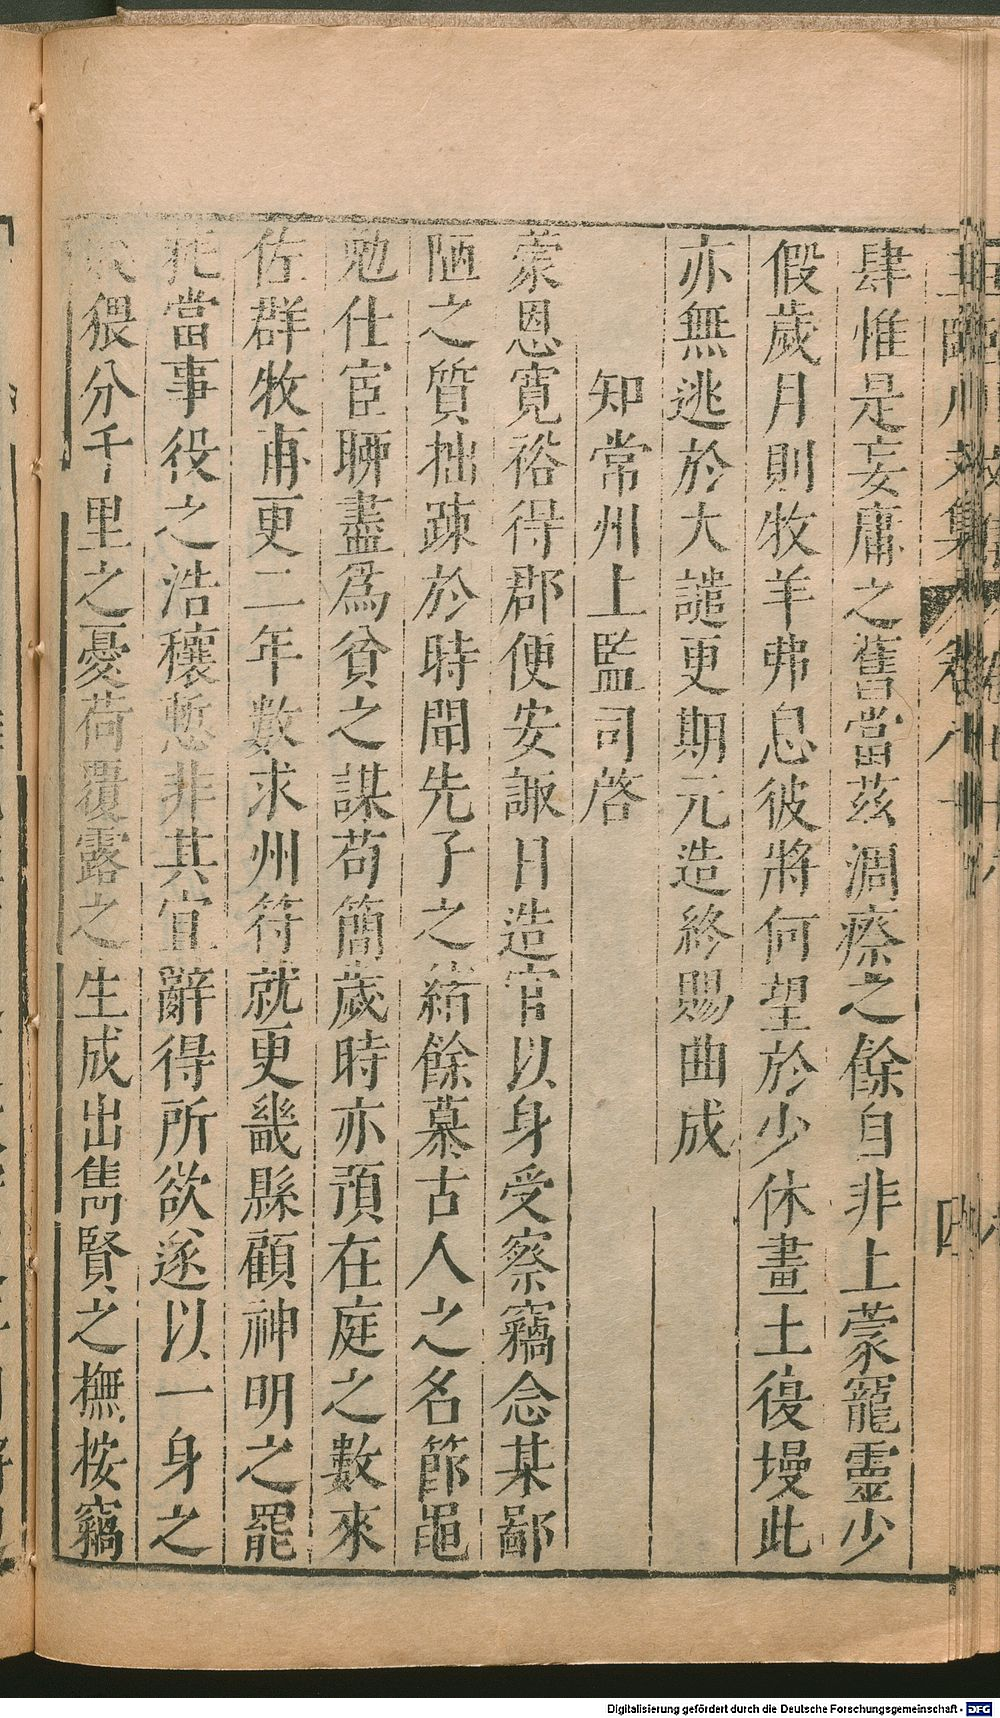 肆惟是妄庸之舊當茲凋瘵之餘自非上蒙寵靈少
假歲月則牧羊弗息彼將何望於少休畫土復墁此
亦無逃於大譴更期元造終賜曲成
知常州上監司啓
蒙恩寬裕得郡便安諏日造官以身受察竊念某鄙
陋之質拙疎於時聞先子之緒餘慕古人之名節黽
勉仕宦聊盡爲貧之謀苟簡歲時亦預在庭之數來
佐群牧甫更二年數求州符就更畿縣顧神明之罷
耗當事役之浩穰慙非其宜辭得所欲遂以一身之
猥分千里之憂荷覆露之生成出雋賢之撫按竊
卷八十
四
Digitalisierung gefördert durch die Deutsche Forschungsgemeinschaft - DFG